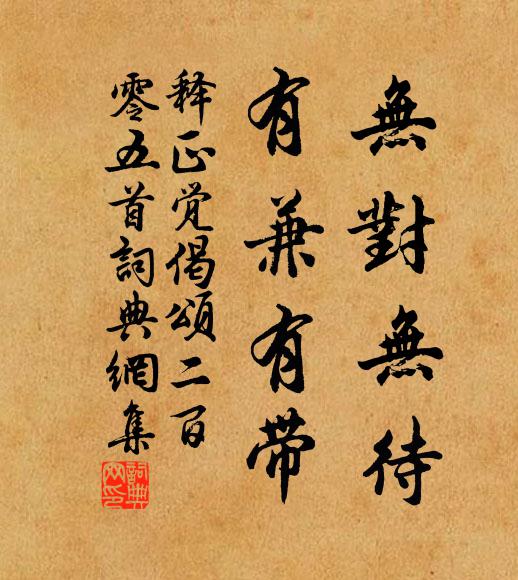 無對無待
有兼有带
释正觉偈頌二百
零五首詞典網集
詞典
网印